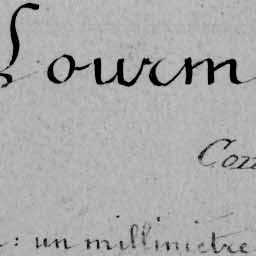 Tourm
Con
: un millimètre